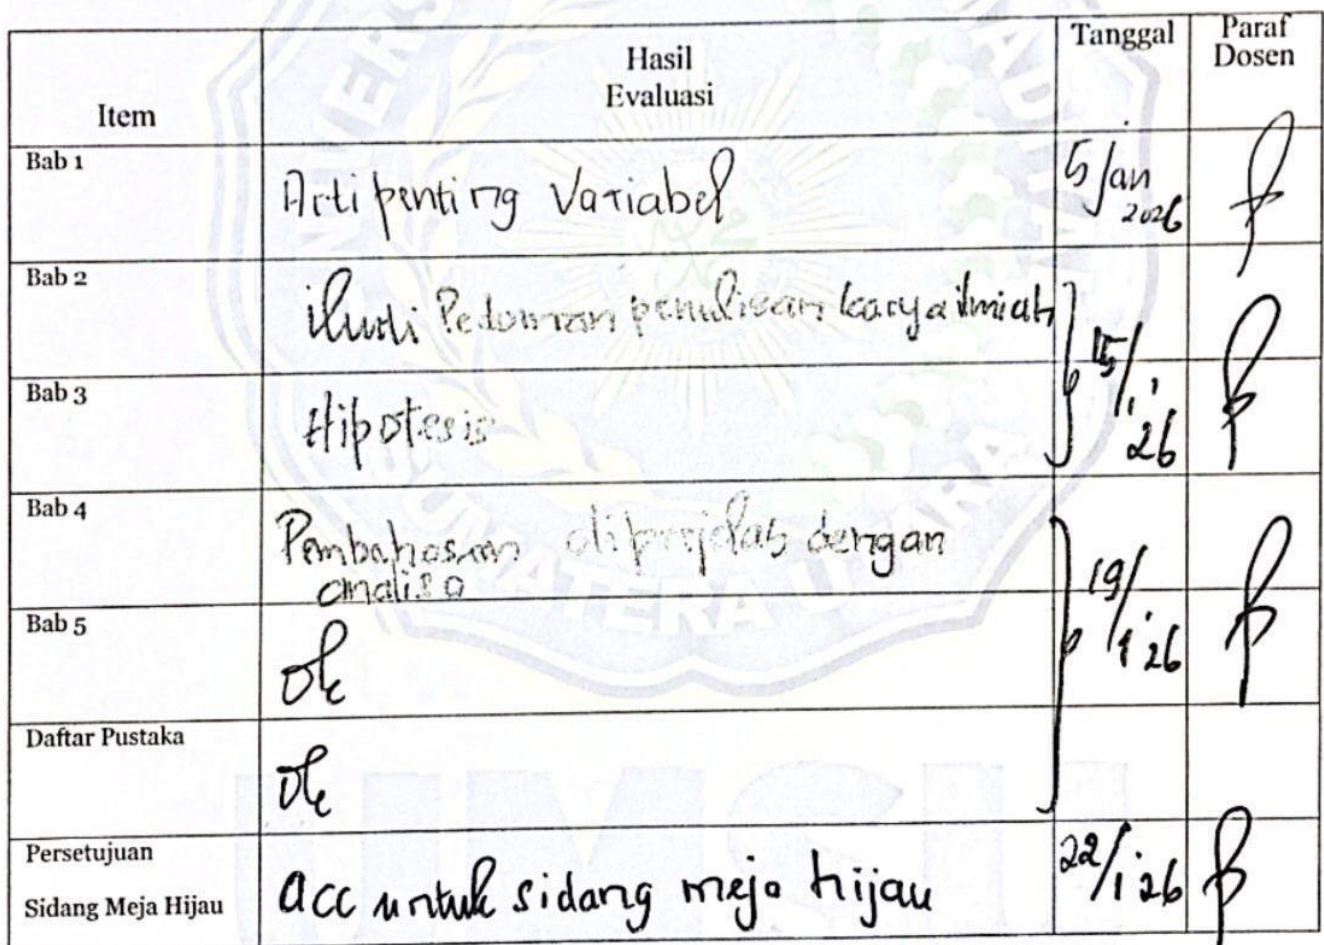 Item
Hasil
Evaluasi
Tanggal
Paraf
Dosen
Bab 1
Arti penting Variabel
5/Jan
2026
Bab 2
ikuti Pedoman penulisan karya ilmiah
15/1'26
Bab 3
Hipotesis
Bab 4
Pembahasan diperjelas dengan
analisa
19/1'26
Bab 5
Ok
Daftar Pustaka
Ok
Persetujuan
Sidang Meja Hijau
acc untuk sidang meja hijau
22/1'26
SUMATERA UTARA
UMSU